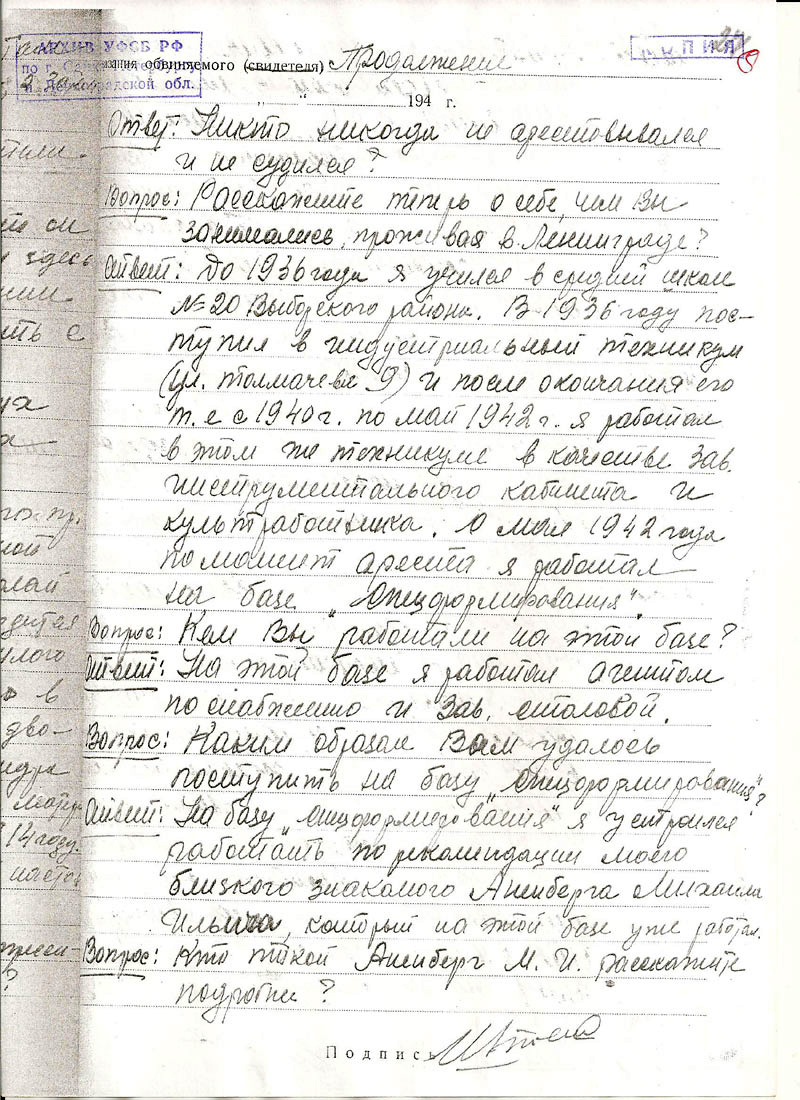 АРХИВ УФСБ РФ
по г. Санкт-Петербургу
и Ленинградской обл.
КОПИЯ
обвиняемого (свидетеля) Продолжение
194 г.
Ответ: Никто никогда не арестовывался
и не судился?
Вопрос: Расскажите теперь о себе, чем Вы
занимались, проживая в Ленинграде?
Ответ: До 1936 года я учился в средней школе
№ 20 Выборгского района. В 1936 году пос-
тупил в индустриальный техникум
(ул. Толмачева 9) и после окончания его
т.е с 1940 г. по май 1942 г. я работал
в этом же техникуме в качестве Зав.
инструментального кабинета и
культработника. С мая 1942 года
по момент ареста я работал
на базе „Спецформирования".
Вопрос: Кем Вы работали на этой базе?
Ответ: На этой базе я работал агентом
по снабжению и Зав. столовой.
Вопрос: Каким образом Вам удалось
поступить на базу „Спецформирования"?
Ответ: На базу „Спецформирования" я устроился
работать по рекомендации моего
близкого знакомого Аненберга Михаила
Ильича, который на этой базе уже работал.
Вопрос: Кто такой Аненберг М. И. расскажите
подробнее?
Подпись